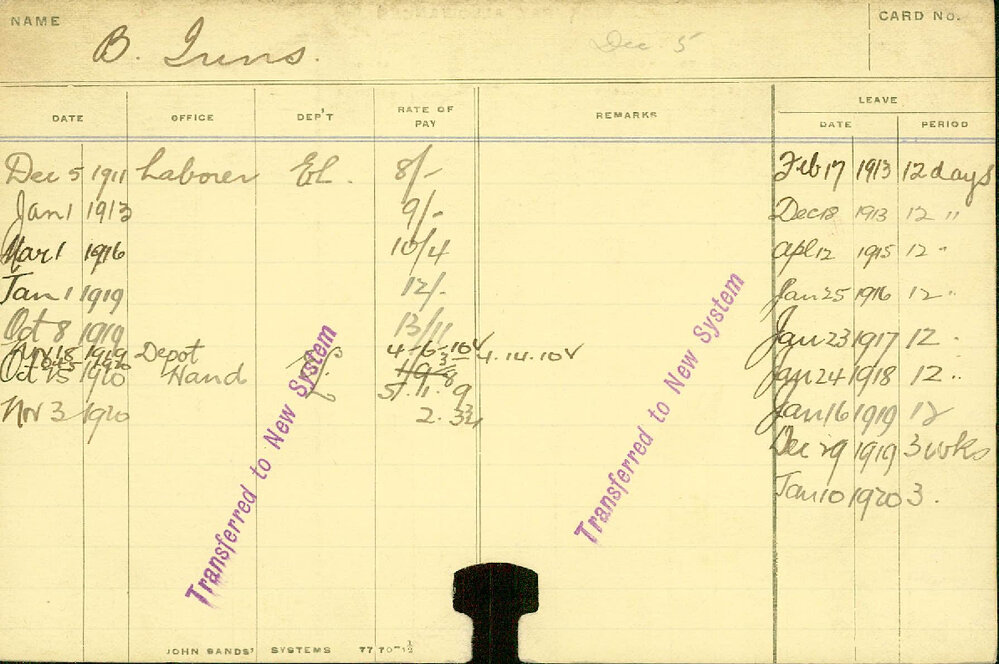 NAME
B. Guns.
Dec. 5
CARD NO.
DATE OFFICE DEP'T RATE OF PAY REMARKS LEAVE
DATE PERIOD
Dec 5 1911 Laborer EL. 8/- Feb 17 1913 12 days
Jan 1 1913 9/- Dec 18 1913 12 "
Mar 1 1916 10/4 Apl 12 1915 12 "
Jan 1 1919 12/- Jan 25 1916 12 "
Oct 8 1919 13/11 Jan 23 1917 12 "
1919 Depot 4-6-10 4.14.10 Jan 24 1918 12 "
Oct 25 1920 Hand 5.11.9 Jan 16 1919 12
Nov 3 1920 2.3¾ Dec 29 1919 3 wks
Jan 10 1920 3.
Transferred to New System
Transferred to New System
JOHN SANDS' SYSTEMS 7770-½